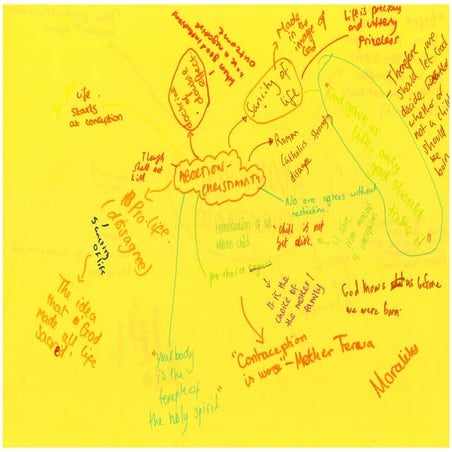 when good intentions
have a negative
outcome
doctrine
of
double
effect
Made
in the
image of
God
Life is precious
and utterly
Priceless
Sanctity of
life
- Therefore we
should let God
decide
whether or
not a child
should
be
born
"God gave us
life, only
god should
take it"
Life
starts
at conception
Though
shall not
kill
ABORTION -
CHRISTIANITY
Roman
Catholics strongly
disagree
No one agrees without
restriction.
termination of an
unborn child
child is not
yet alive.
is alive
from moment
of conception
Pro-life
(disagree)
sanctity
of life
The idea
that God
made all life
sacred.
pro-choice
it is the
choice of
the mother/
family
God knows us before
we were born.
"your body
is the
temple of
the holy spirit."
"Contraception
is worse" - Mother Teresa
Morality